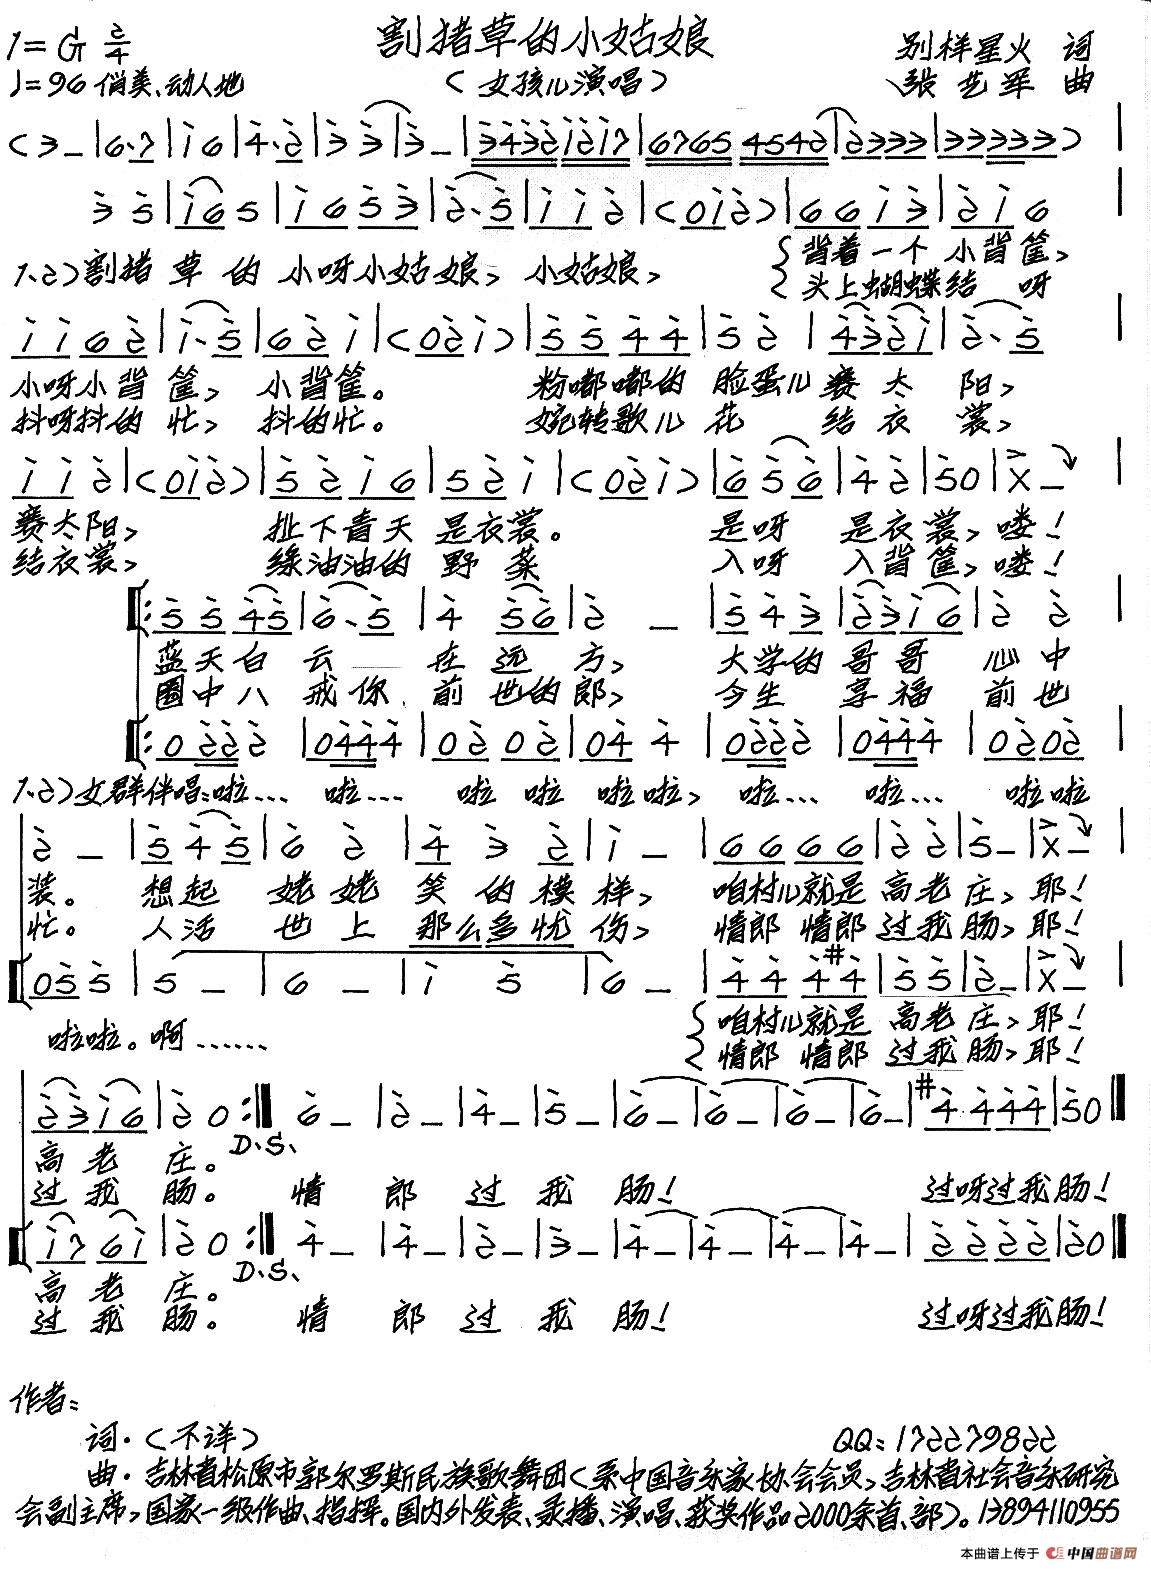 割猪草的小姑娘
1=G 2/4
别样星火 词
♩=96 俏美、动人地
(女孩儿演唱)
张艺军 曲
(3 – | 6·7 | i 6 | 4·2 | 3 3 | 3 – | 3432 i2i7 | 6765 4542 | 2333 | 33333 )
3 5 | i 6 5 | i 6 5 3 | 2·5 | i i 2 | (0i2) | 6 6 i 3 | 2 i 6
1、2)割猪草的小呀小姑娘,小姑娘, 背着一个小背筐,
头上蝴蝶结呀
i i 6 2 | i·5 | 6 2 i | (02i) | 5 5 4 4 | 5 2 | 432i | 2·5
小呀小背筐,小背筐。 粉嘟嘟的脸蛋儿赛太阳,
抖呀抖的忙,抖的忙。 婉转歌儿花结衣裳,
i i 2 | (0i2) | 5 2 i 6 | 5 2 i | (02i) | 6 5 6 | 4 2 | 50 | X –
赛太阳, 扯下青天是衣裳。 是呀是衣裳,喽!
结衣裳, 绿油油的野菜 入呀入背筐,喽!
5 5 45 | 6·5 | 4 56 | 2 – | 5 4 3 | 23i6 | 2 2
蓝天白云在远方, 大学的哥哥心中
圈中八戒你前世的郎, 今生享福前世
0 222 | 0444 | 02 02 | 04 4 | 0222 | 0444 | 0202
1、2)女群伴唱:啦… 啦… 啦啦啦啦, 啦… 啦… 啦啦
2 – | 5 4 5 | 6 2 | 4 3 2 | i – | 6 6 6 6 | 2 2 | 5 – | X –
装。想起姥姥笑的模样, 咱村儿就是高老庄,耶!
忙。人活世上那么多忧伤, 情郎情郎过我肠,耶!
055 | 5 – | 6 – | i 5 | 6 – | 4 4 4 #4 | 5 5 | 2 – | X –
啦啦。啊…… 咱村儿就是高老庄,耶!
情郎情郎过我肠,耶!
23i6 | 2 0 :‖ 6 – | 2 – | 4 – | 5 – | 6 – | 6 – | 6 – | 6 – | #4 444 | 50 ‖
D.S.
高老庄。
过我肠。 情郎过我肠! 过呀过我肠!
i7 6i | 2 0 :‖ 4 – | 4 – | 2 – | 3 – | 4 – | 4 – | 4 – | 4 – | 2222 | 20 ‖
D.S.
高老庄。
过我肠。 情郎过我肠! 过呀过我肠!
作者:
词·(不详) QQ:172279822
曲·吉林省松原市郭尔罗斯民族歌舞团(系中国音乐家协会会员,吉林省社会音乐研究
会副主席,国家一级作曲、指挥。国内外发表、录播、演唱、获奖作品2000余首、部)。13894110955
本曲谱上传于 中国曲谱网